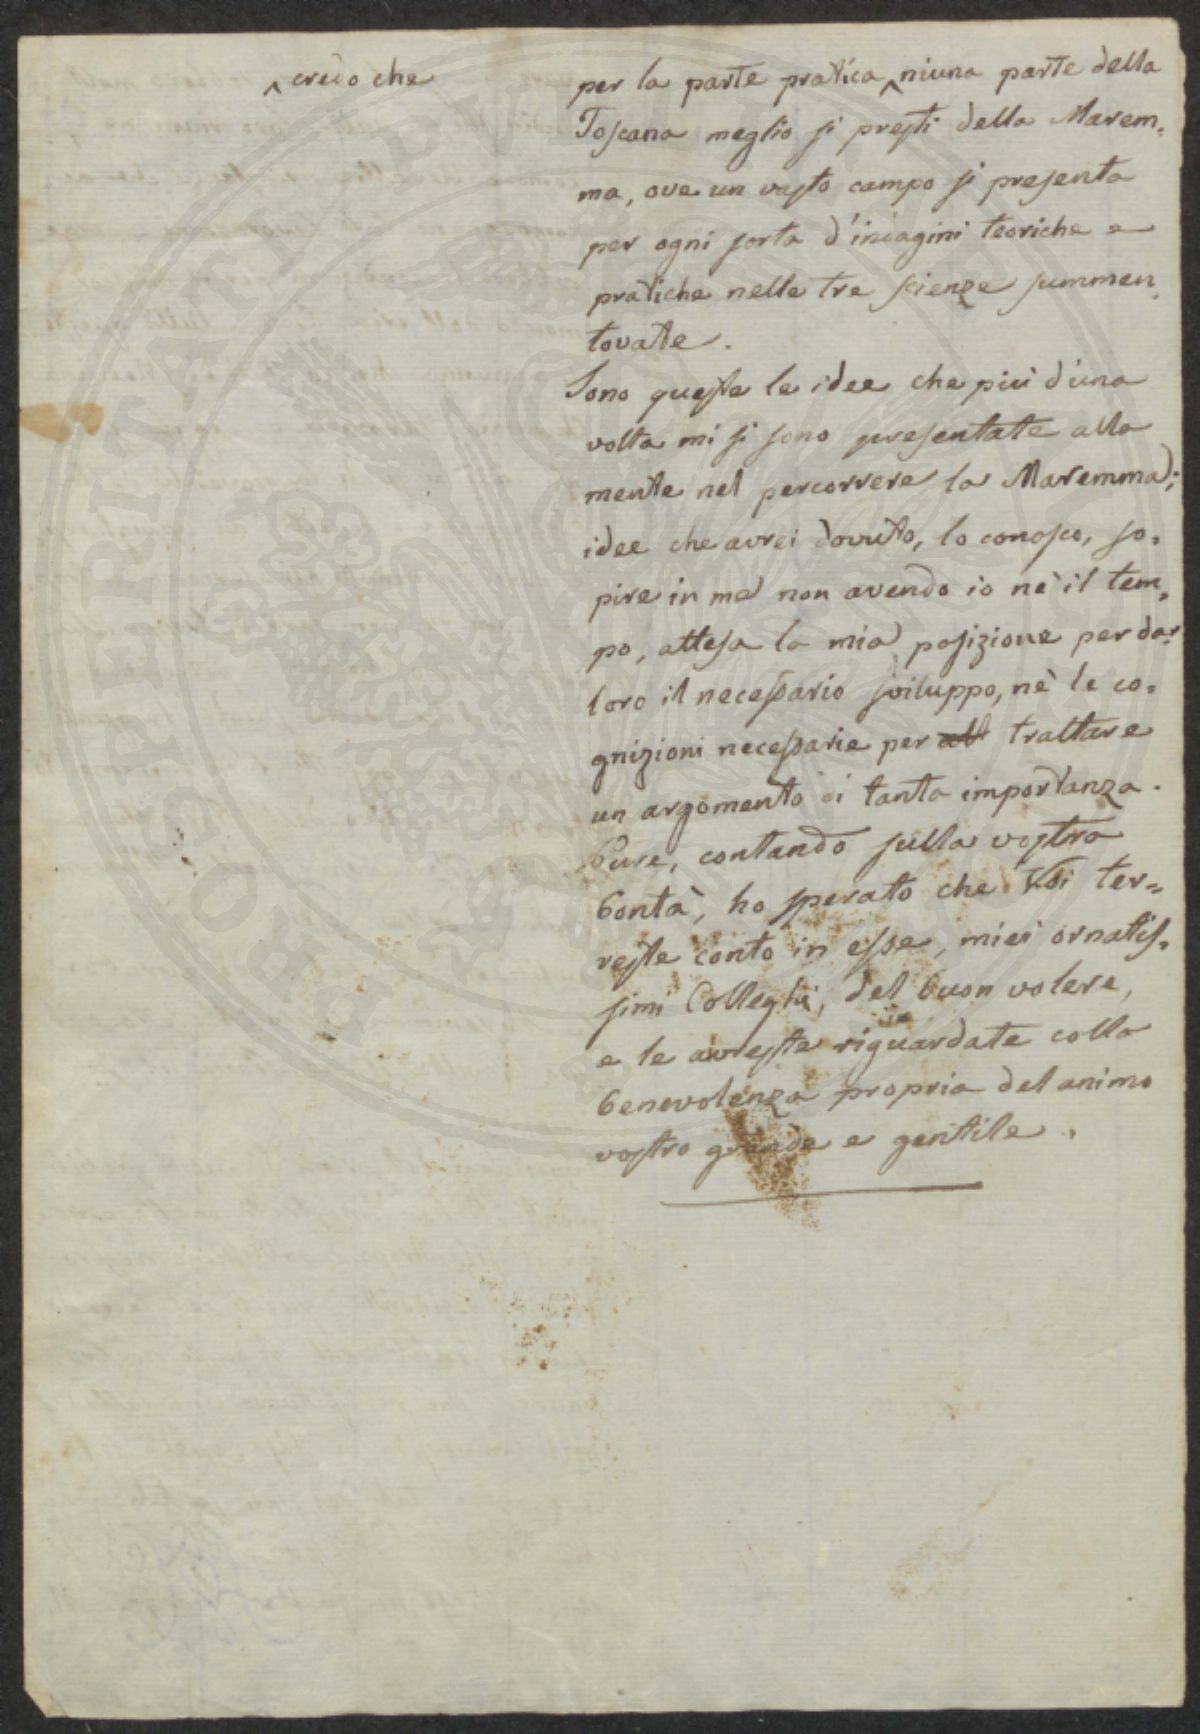 ^ credo che
per la parte pratica ^ niuna parte della
Toscana meglio si presti della Marem=
ma, ove un vasto campo si presenta
per ogni sorta d'indagini teoriche e
pratiche nelle tre scienze summen=
tovate.
Sono queste le idee che più d'una
volta mi si sono presentate alla
mente nel percorrere la Maremma;
idee che avrei dovuto, lo conosco, so=
pire in me non avendo io nè il tem=
po, attesa la mia posizione per dar
loro il necessario sviluppo, nè le co=
gnizioni necessarie per trattare
un argomento di tanta importanza.
Pure, contando sulla vostra
bontà, ho sperato che Voi ter=
reste conto in esse, miei ornatis=
simi Colleghi, del buon volere,
e le avreste riguardate colla
benevolenza propria del animo
vostro grande e gentile.
PROSPERITATI PUBLICAE